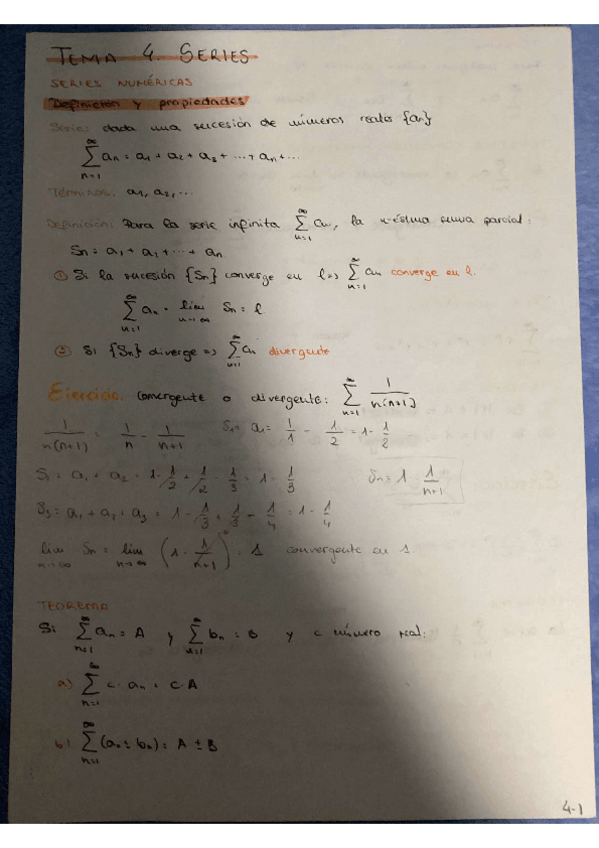 TEMA 4. SERIES
SERIES NUMÉRICAS
Definición y propiedades
Serie: dada una sucesión de números reales {an}
∞ Σ n=1 an = a1 + a2 + a3 + ... + an + ...
Términos: a1, a2, ...
Definición: Para la serie infinita ∞ Σ n=1 an, la n-ésima suma parcial:
Sn = a1 + a2 + ... + an
① Si la sucesión {Sn} converge en l => ∞ Σ n=1 an converge en l.
∞ Σ n=1 an = lim n→∞ Sn = l
② Si {Sn} diverge => ∞ Σ n=1 an divergente
Ejercicio. Convergente o divergente: ∞ Σ n=1 1/n(n+1)
1/n(n+1) = 1/n - 1/n+1 S1 = a1 = 1/1 - 1/2 = 1 - 1/2
S2 = a1 + a2 = 1 - 1/2 + 1/2 - 1/3 = 1 - 1/3 Sn = 1 - 1/n+1
S3 = a1 + a2 + a3 = 1 - 1/3 + 1/3 - 1/4 = 1 - 1/4
lim n→∞ Sn = lim n→∞ (1 - 1/n+1) = 1 convergente en 1.
TEOREMA
Si ∞ Σ n=1 an = A y ∞ Σ n=1 bn = B y c número real:
a) ∞ Σ n=1 c · an = c · A
b) ∞ Σ n=1 (an ± bn) = A ± B
4-1